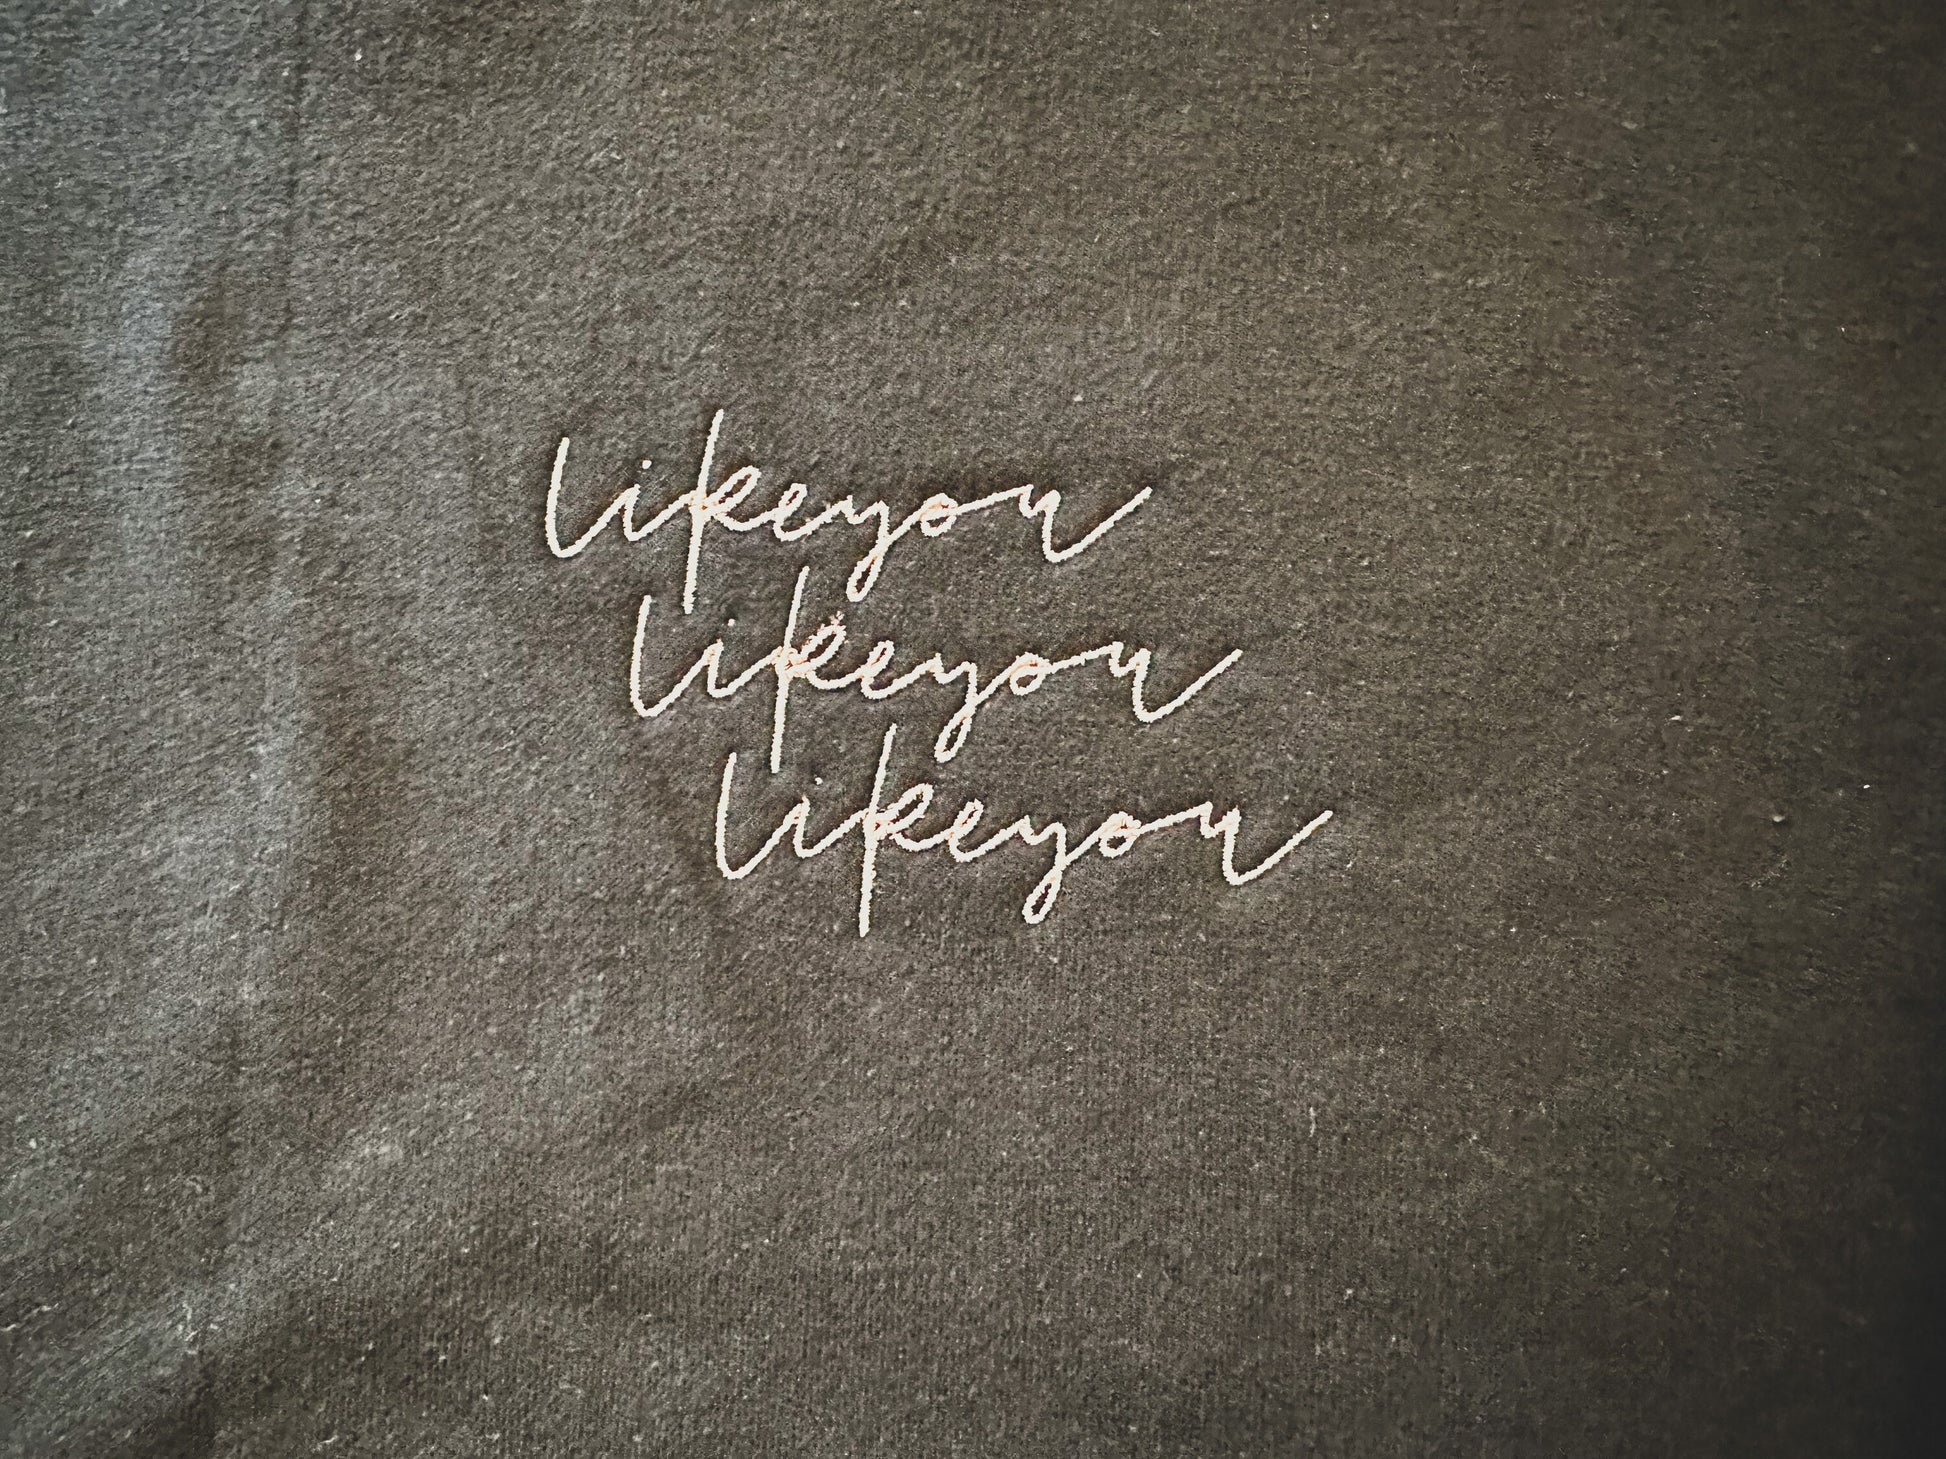 likeyou
likeyou
likeyou